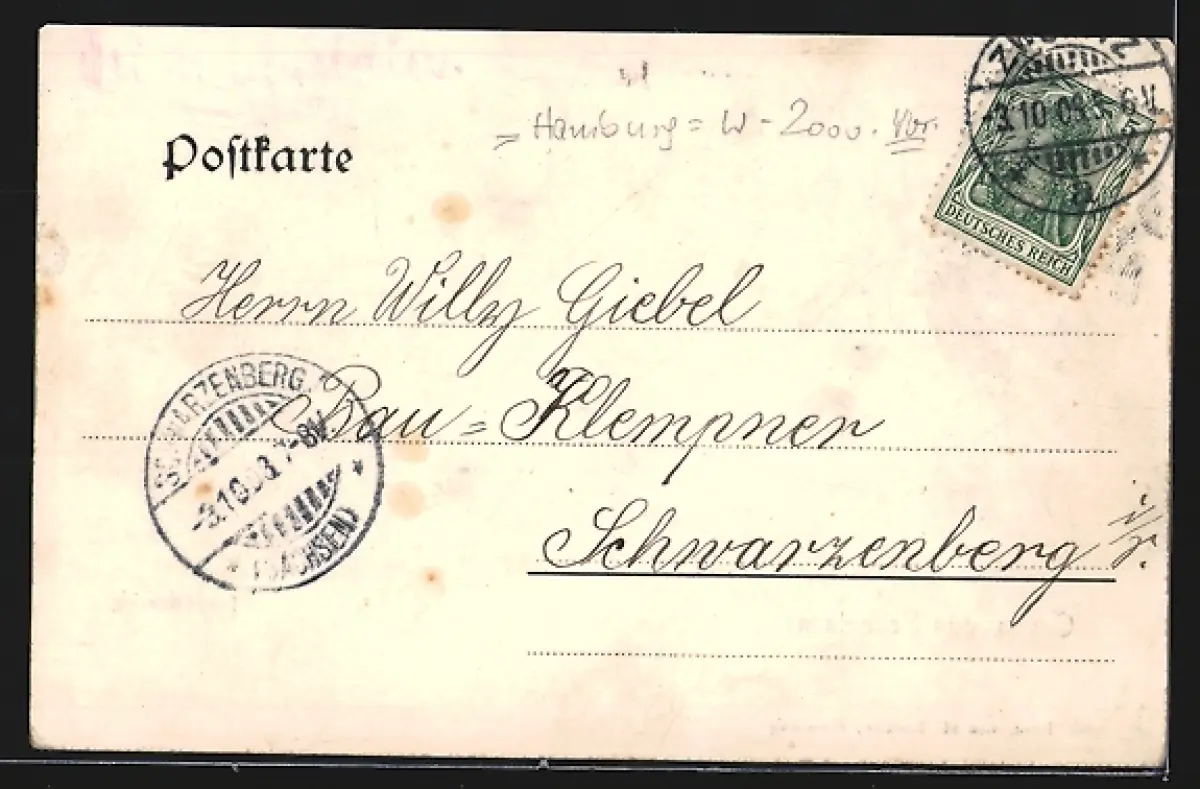 = Hamburg = W - 2000. Vor.
Postkarte
3.10.03. 5-6V.
DEUTSCHES REICH
Herrn Willy Giebel
SCHWARZENBERG.
-3.10.03. 7-8V.
(SACHSEN)
Bau = Klempner
Schwarzenberg i/